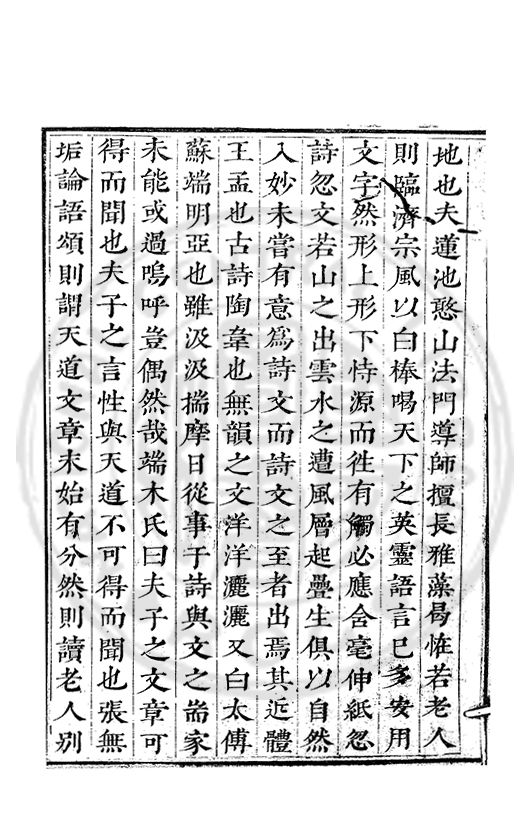 地也夫蓮池憨山法門導師擅長雅藻曷惟若老人
則臨濟宗風以白棒喝天下之英靈語言已多安用
文字然形上形下恃源而徃有觸必應含毫伸紙忽
詩忽文若山之出雲水之遭風層起疊生俱以自然
入妙未嘗有意爲詩文而詩文之至者出焉其近體
王孟也古詩陶韋也無韻之文洋洋灑灑又白太傅
蘇端明亞也雖汲汲揣摩日從事于詩與文之耑家
未能或過嗚呼豈偶然哉端木氏曰夫子之文章可
得而聞也夫子之言性與天道不可得而聞也張無
垢論語頌則謂天道文章未始有分然則讀老人別